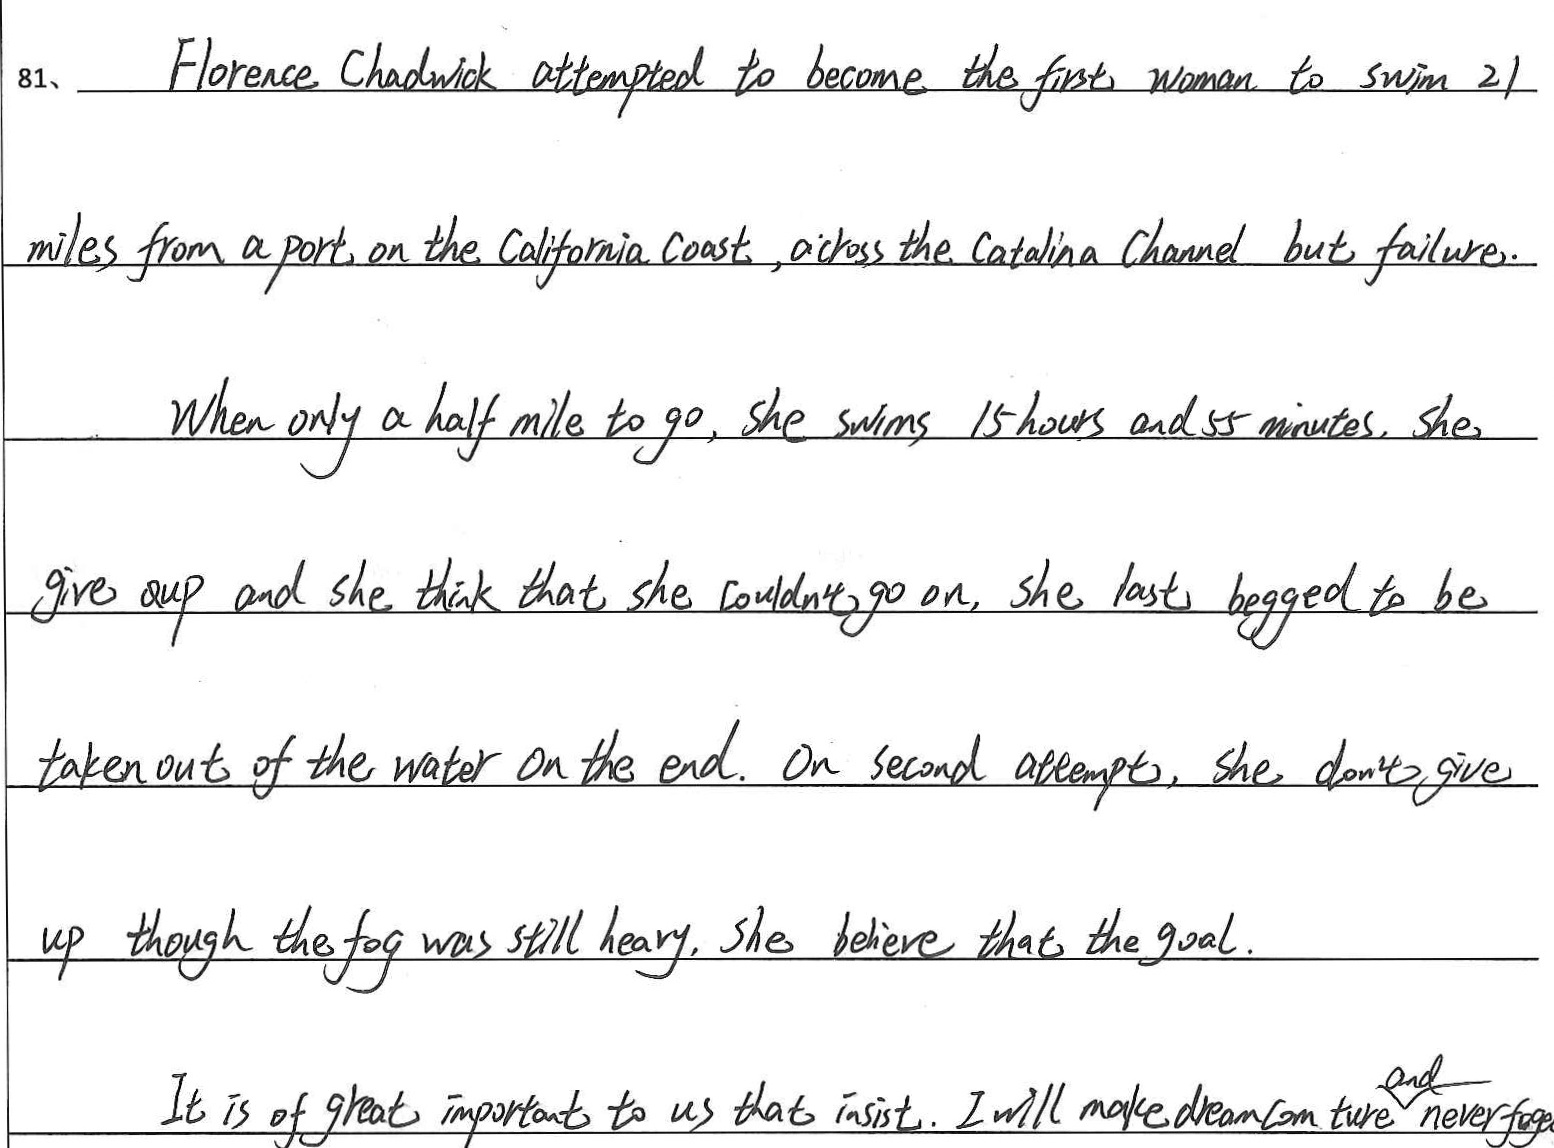 81、 Florence Chadwick attempted to become the first woman to swim 21
miles from a port on the California Coast, across the Catalina Channel but failure.
When only a half mile to go, she swims 15 hours and 55 minutes. She
give up and she think that she couldn't go on, she last begged to be
taken out of the water on the end. On second attempt, she don't give
up though the fog was still heavy. She believe that the goal.
It is of great important to us that insist. I will make dream com ture and never